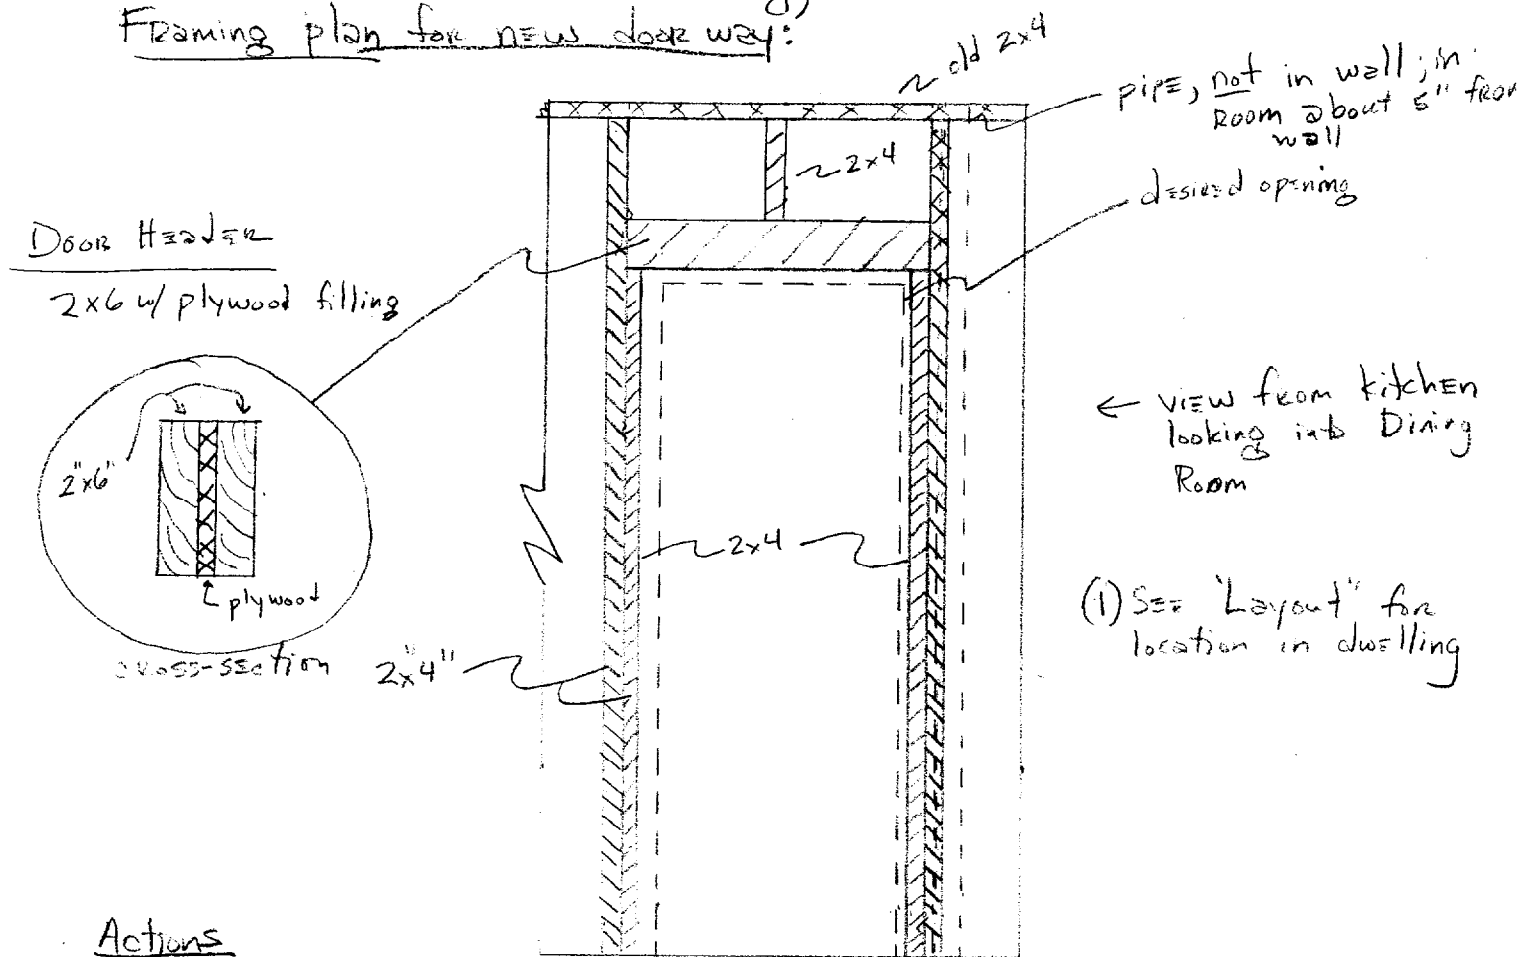 Framing plan for new door way:
old 2x4
pipe, not in wall; in
Room about 5" from
wall
2x4
desired opening
Door Header
2x6 w/ plywood filling
2"x6"
plywood
cross-section
2"x4"
2x4
← view from kitchen
looking into Dining
Room
(1) See "Layout" for
location in dwelling
Actions